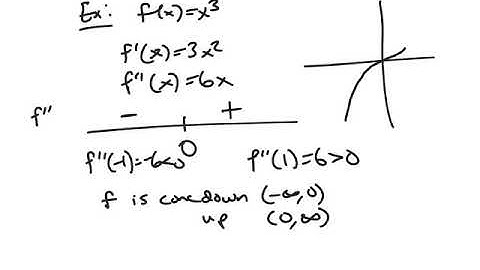 Ex: f(x)=x³
f'(x)=3x²
f''(x)=6x
f'' − +
0
f''(-1)=-6<0 f''(1)=6>0
f is conc down (-∞,0)
up (0,∞)